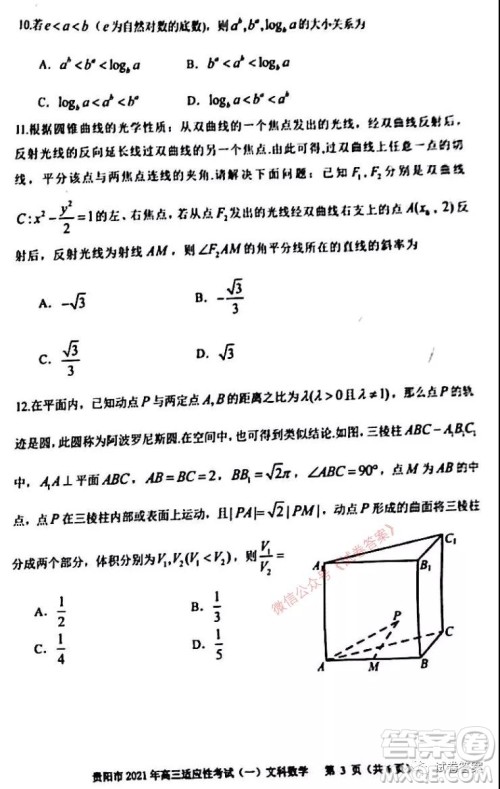 10.若e<a<b（e为自然对数的底数），则a^b,b^a,log_b a的大小关系为
A. a^b<b^a<log_b a  B. b^a<a^b<log_b a
C. log_b a<a^b<b^a  D. log_b a<b^a<a^b
11.根据圆锥曲线的光学性质：从双曲线的一个焦点发出的光线，经双曲线反射后，
反射光线的反向延长线过双曲线的另一个焦点.由此可得，过双曲线上任意一点的切
线，平分该点与两焦点连线的夹角.请解决下面问题：已知F₁,F₂分别是双曲线
C:x²-y²/2=1的左、右焦点，若从点F₂发出的光线经双曲线右支上的点A(x₀,2)反
射后，反射光线为射线AM，则∠F₂AM的角平分线所在的直线的斜率为
A. -√3  B. -√3/3
C. √3/3  D. √3
12.在平面内，已知动点P与两定点A,B的距离之比为λ(λ>0且λ≠1)，那么点P的轨
迹是圆，此圆称为阿波罗尼斯圆.在空间中，也可得到类似结论.如图，三棱柱ABC-A₁B₁C₁
中，A₁A⊥平面ABC，AB=BC=2，BB₁=√2π，∠ABC=90°，点M为AB的中
点，点P在三棱柱内部或表面上运动，且|PA|=√2|PM|，动点P形成的曲面将三棱柱
分成两个部分，体积分别为V₁,V₂(V₁<V₂)，则V₁/V₂=
A. 1/2  B. 1/3
C. 1/4  D. 1/5
A₁ B₁ C₁
P
A M B C
微信公众号《试卷答案》
贵阳市2021年高三适应性考试（一）文科数学 第3页（共6页）
答案圈
试卷答案